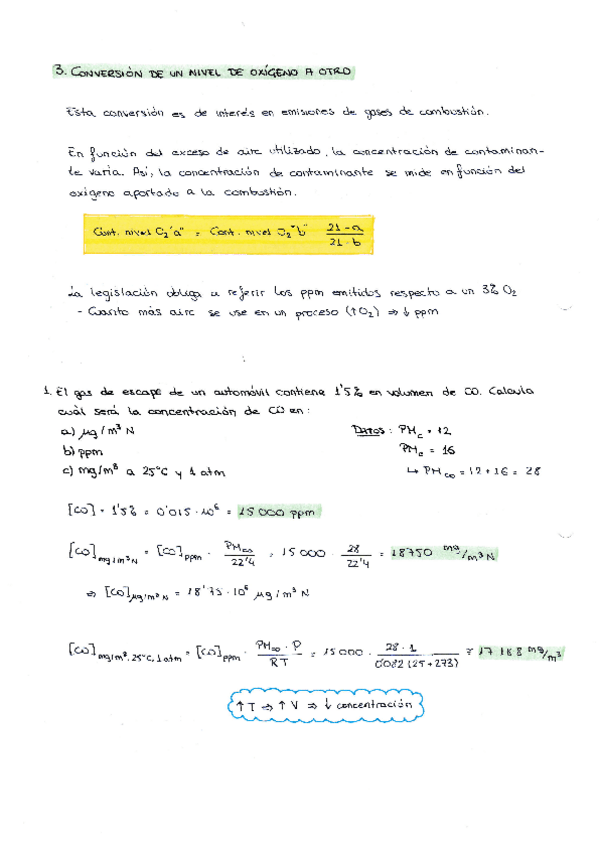 3. CONVERSIÓN DE UN NIVEL DE OXÍGENO A OTRO
Esta conversión es de interés en emisiones de gases de combustión.
En función del exceso de aire utilizado, la concentración de contaminan-
te varía. Así, la concentración de contaminante se mide en función del
oxígeno aportado a la combustión.
Cont. nivel O₂ "a" = Cont. nivel O₂ "b" (21-a)/(21-b)
La legislación obliga a referir los ppm emitidos respecto a un 3% O₂
- Cuanto más aire se use en un proceso (↑O₂) ⇒ ↓ ppm
1. El gas de escape de un automóvil contiene 1'5% en volumen de CO. Calcula
cuál será la concentración de CO en:
a) μg/m³N DATOS: PM_C = 12
b) ppm PM_C = 16
c) mg/m³ a 25°C y 1 atm ↳ PM_CO = 12 + 16 = 28
[CO] = 1'5% = 0'015 · 10⁶ = 15000 ppm
[CO]mg/m³N = [CO]ppm · PM_CO/22'4 = 15000 · 28/22'4 = 18750 mg/m³N
⇒ [CO]μg/m³N = 18'75 · 10⁶ μg/m³N
[CO]mg/m³, 25°C, 1 atm = [CO]ppm · (PM_CO · P)/(RT) = 15000 · (28 · 1)/(0'082 (25+273)) = 17188 mg/m³
↑T ⇒ ↑V ⇒ ↓ concentración